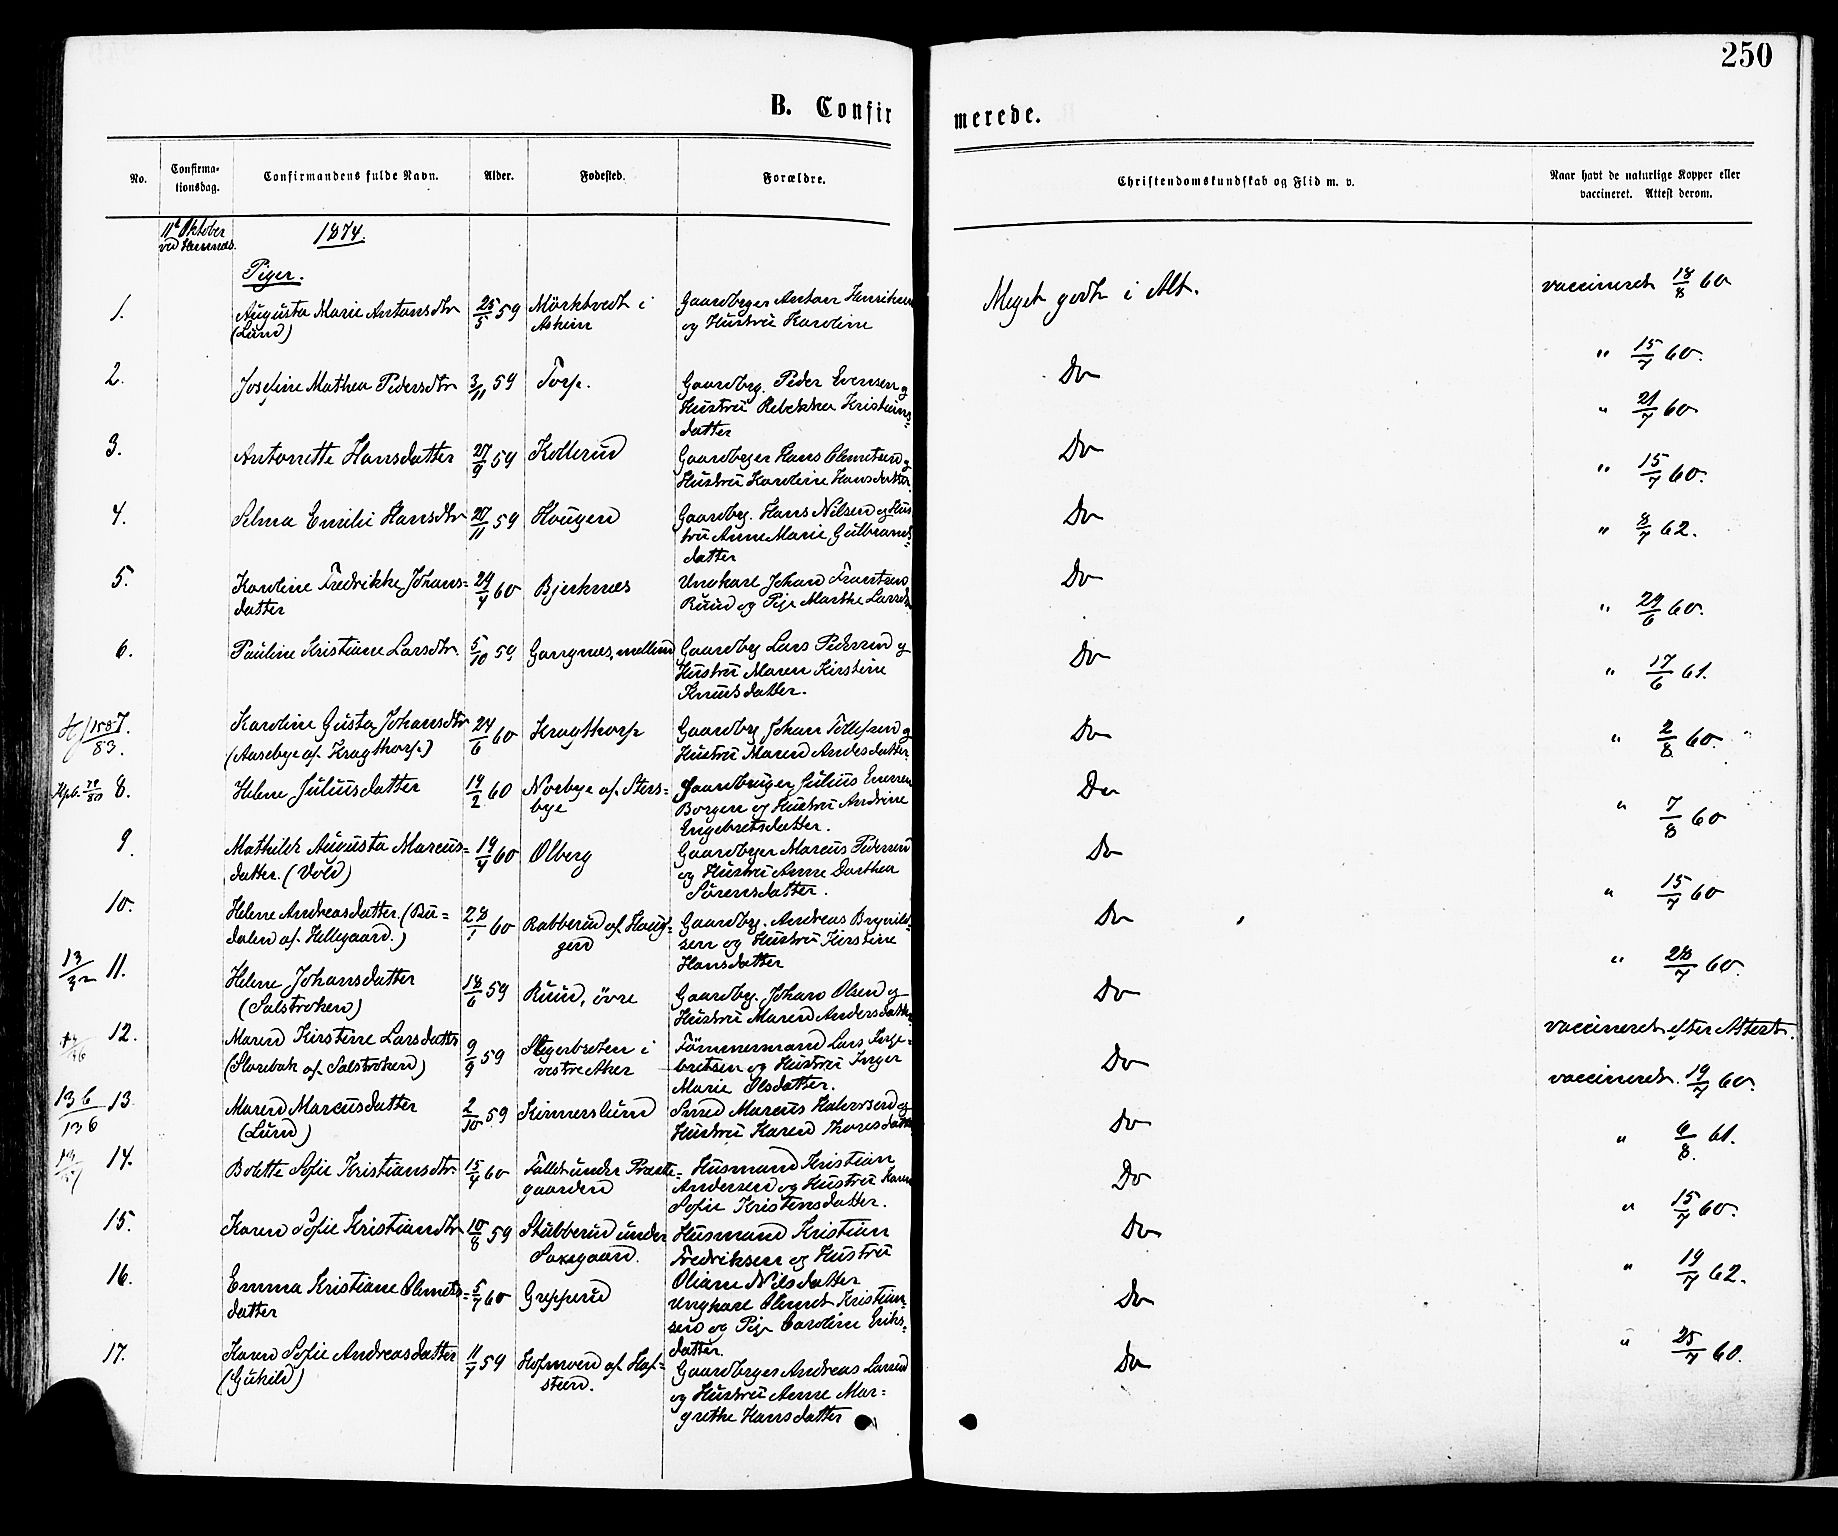 250
B. Confir
merede.
No.
Confirma-
tionsdag.
Confirmandens fulde Navn.
Alder.
Fødested.
Forældre.
Christendomskundskab og Flid m. v.
Naar havt de naturlige Kopper eller
vaccineret. Attest derom.
11te Oktober
ved Hemnæs.
1874.
Piger.
1.
Augusta Marie Antonsdtr
(Lund)
25/5 59
Mørktvedt i
Askim
Gaardbryger Anton Henriksen
og Hustru Karoline
Meget godt i Alt.
vaccineret 18/8 60
2.
Josefine Mathea Pedersdtr
3/11 59
Torp.
Gaardbrg. Peder Evensen og
Hustru Rebekka Kristians=
datter
Do
" 15/7 60.
3.
Antonette Hansdatter
27/9 59
Kollerud
Gaardbryger Hans Olmetsen og
Hustru Karoline Hansdatter
Do
" 21/7 60
4.
Selma Emilie Hansdtr
27/11 59
Hougen
Gaardbrg. Hans Nilsen og Hus
tru Anne Marie Gulbrands=
datter
Do
" 15/7 60.
5.
Karoline Fredrikke Johans=
datter
24/4 60
Bjerknæs
Ungkarl Johan Frantsen
Ruud og Pige Marthe Larsdtr
Do
" 8/7 62.
6.
Pauline Kristiane Larsdtr.
5/10 59
Gangnæs, mellem
Gaardbrg Lars Pedersen og
Hustru Maren Kirstine
Knudsdatter.
Do
" 29/6 60.
7.
Karoline Gusta Johansdtr
(Aasebye af Kragthorp)
24/6 60
Kragthorp
Gaardbrg Johan Tollefsen og
Hustru Maren Andersdatter
Do
" 17/6 61.
8.
Helene Juliusdatter
19/2 60
Norbye af Stens=
bye
Gaardbruger Julius Evensen
Borgen og Hustru Andrine
Engebretsdatter.
Do
" 2/8 60.
9.
Mathilde Augusta Marcus=
datter. (Vold)
19/4 60
Olberg
Gaardbryger Marcus Pedersen
og Hustru Anne Dorthea
Sørensdatter.
Do
" 7/8 60
10.
Helene Andreasdatter (Bu=
dalen af Hellegaard.)
28/1 60
Rabberud af Houg=
gen
Gaardbrg. Andreas Brynild=
sen og Hustru Kirstine
Hansdatter
Do
" 15/7 60
11.
Helene Johansdatter
(Salstroken)
18/6 59
Ruud, övre
Gaardbrg. Johan Olsen og
Hustru Maren Andersdatter
Do
" 28/7 60.
12.
Maren Kirstine Larsdatter
(Slorebak af Salstroken)
9/9 59
Slegerbraten i
vestre Aker
Tömmermand Lars Inge=
bretsen og Hustru Inger
Marie Olsdatter.
Do
vaccineret efter Attest.
136/136 13.
Maren Marcusdatter
(Lund)
2/10 59
Kinnerslund
Smed Marcus Halvorsen og
Hustru Karen Thoresdatter
Do
vaccineret. 19/7 60.
14.
Bolette Sofie Kristiansdtr.
15/4 60
Fallet under Præste=
gaarden
Husmand Kristian
Andersen og Hustru Karen
Sofie Kristensdatter.
Do
" 6/8 61.
15.
Karen Sofie Kristiandtr
10/8 59
Stubberud under
Saxegaard.
Husmand Kristian
Fredriksen og Hustru
Oliane Nilsdatter
Do
" 15/7 60.
16.
Emma Kristiane Olmets=
datter
5/7 60
Grepperud
Ungkarl Olmet Kristian=
sen og Pige Caroline Eriks=
datter.
Do
" 19/7 62.
17.
Karen Sofie Andreasdatter
(Guhild)
11/7 59
Hofmoen af Haf=
steen.
Gaardbryger Andreas Larsen
og Hustru Anne Mar=
grethe Hansdatter
Do
" 25/7 60.